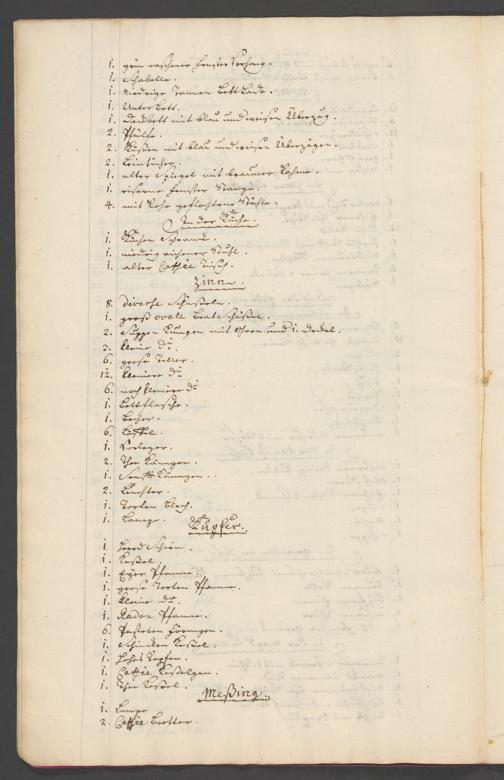 1. grün raschener Fenster Vorhang.
1. Schabelle.
1. Niedrige Tannen Bett Lade.
1. Unter Bett.
1. Deckbett mit blau und weisen Überzug.
2. Pfülle.
2. Küßen mit blau und weisen Überzügen.
2. Leintücher.
1. alter Spiegel mit brauner Rahme.
1. eiserne Fenster Stange.
4. mit Rohr geflochtene Stühle.
In der Küche.
1. Küchen Schranck.
1. niedrig eichener Stuhl.
1. alter Caffée Tisch.
Zinn.
8. diverse Schüßeln.
1. groß ovale Brat Schüßel.
2. Suppen Kumpen mit Ohren und 1. Deckel.
3. kleine do.
6. große Teller.
12. kleinere do
6. noch kleinere do
1. Bettflasche.
1. Becher.
6. Löffel.
1. Vorleger.
2. Thee Känngen.
1. Senff Känngen.
2. Leuchter.
1. Torten Blech.
1. Lampe.
Kupfer.
1. Heerd Schirm.
1. Keßel.
1. Eyer Pfanne.
1. große Torten Pfanne.
1. kleine do.
1. Pfanne.
6. Pasteten Förmgen.
1. Schincken Keßel.
1. Topfen.
1. Caffée Keßelgen.
1. Thee Keßel.
Meßing.
1. Lampe
2. Caffée Bretter.